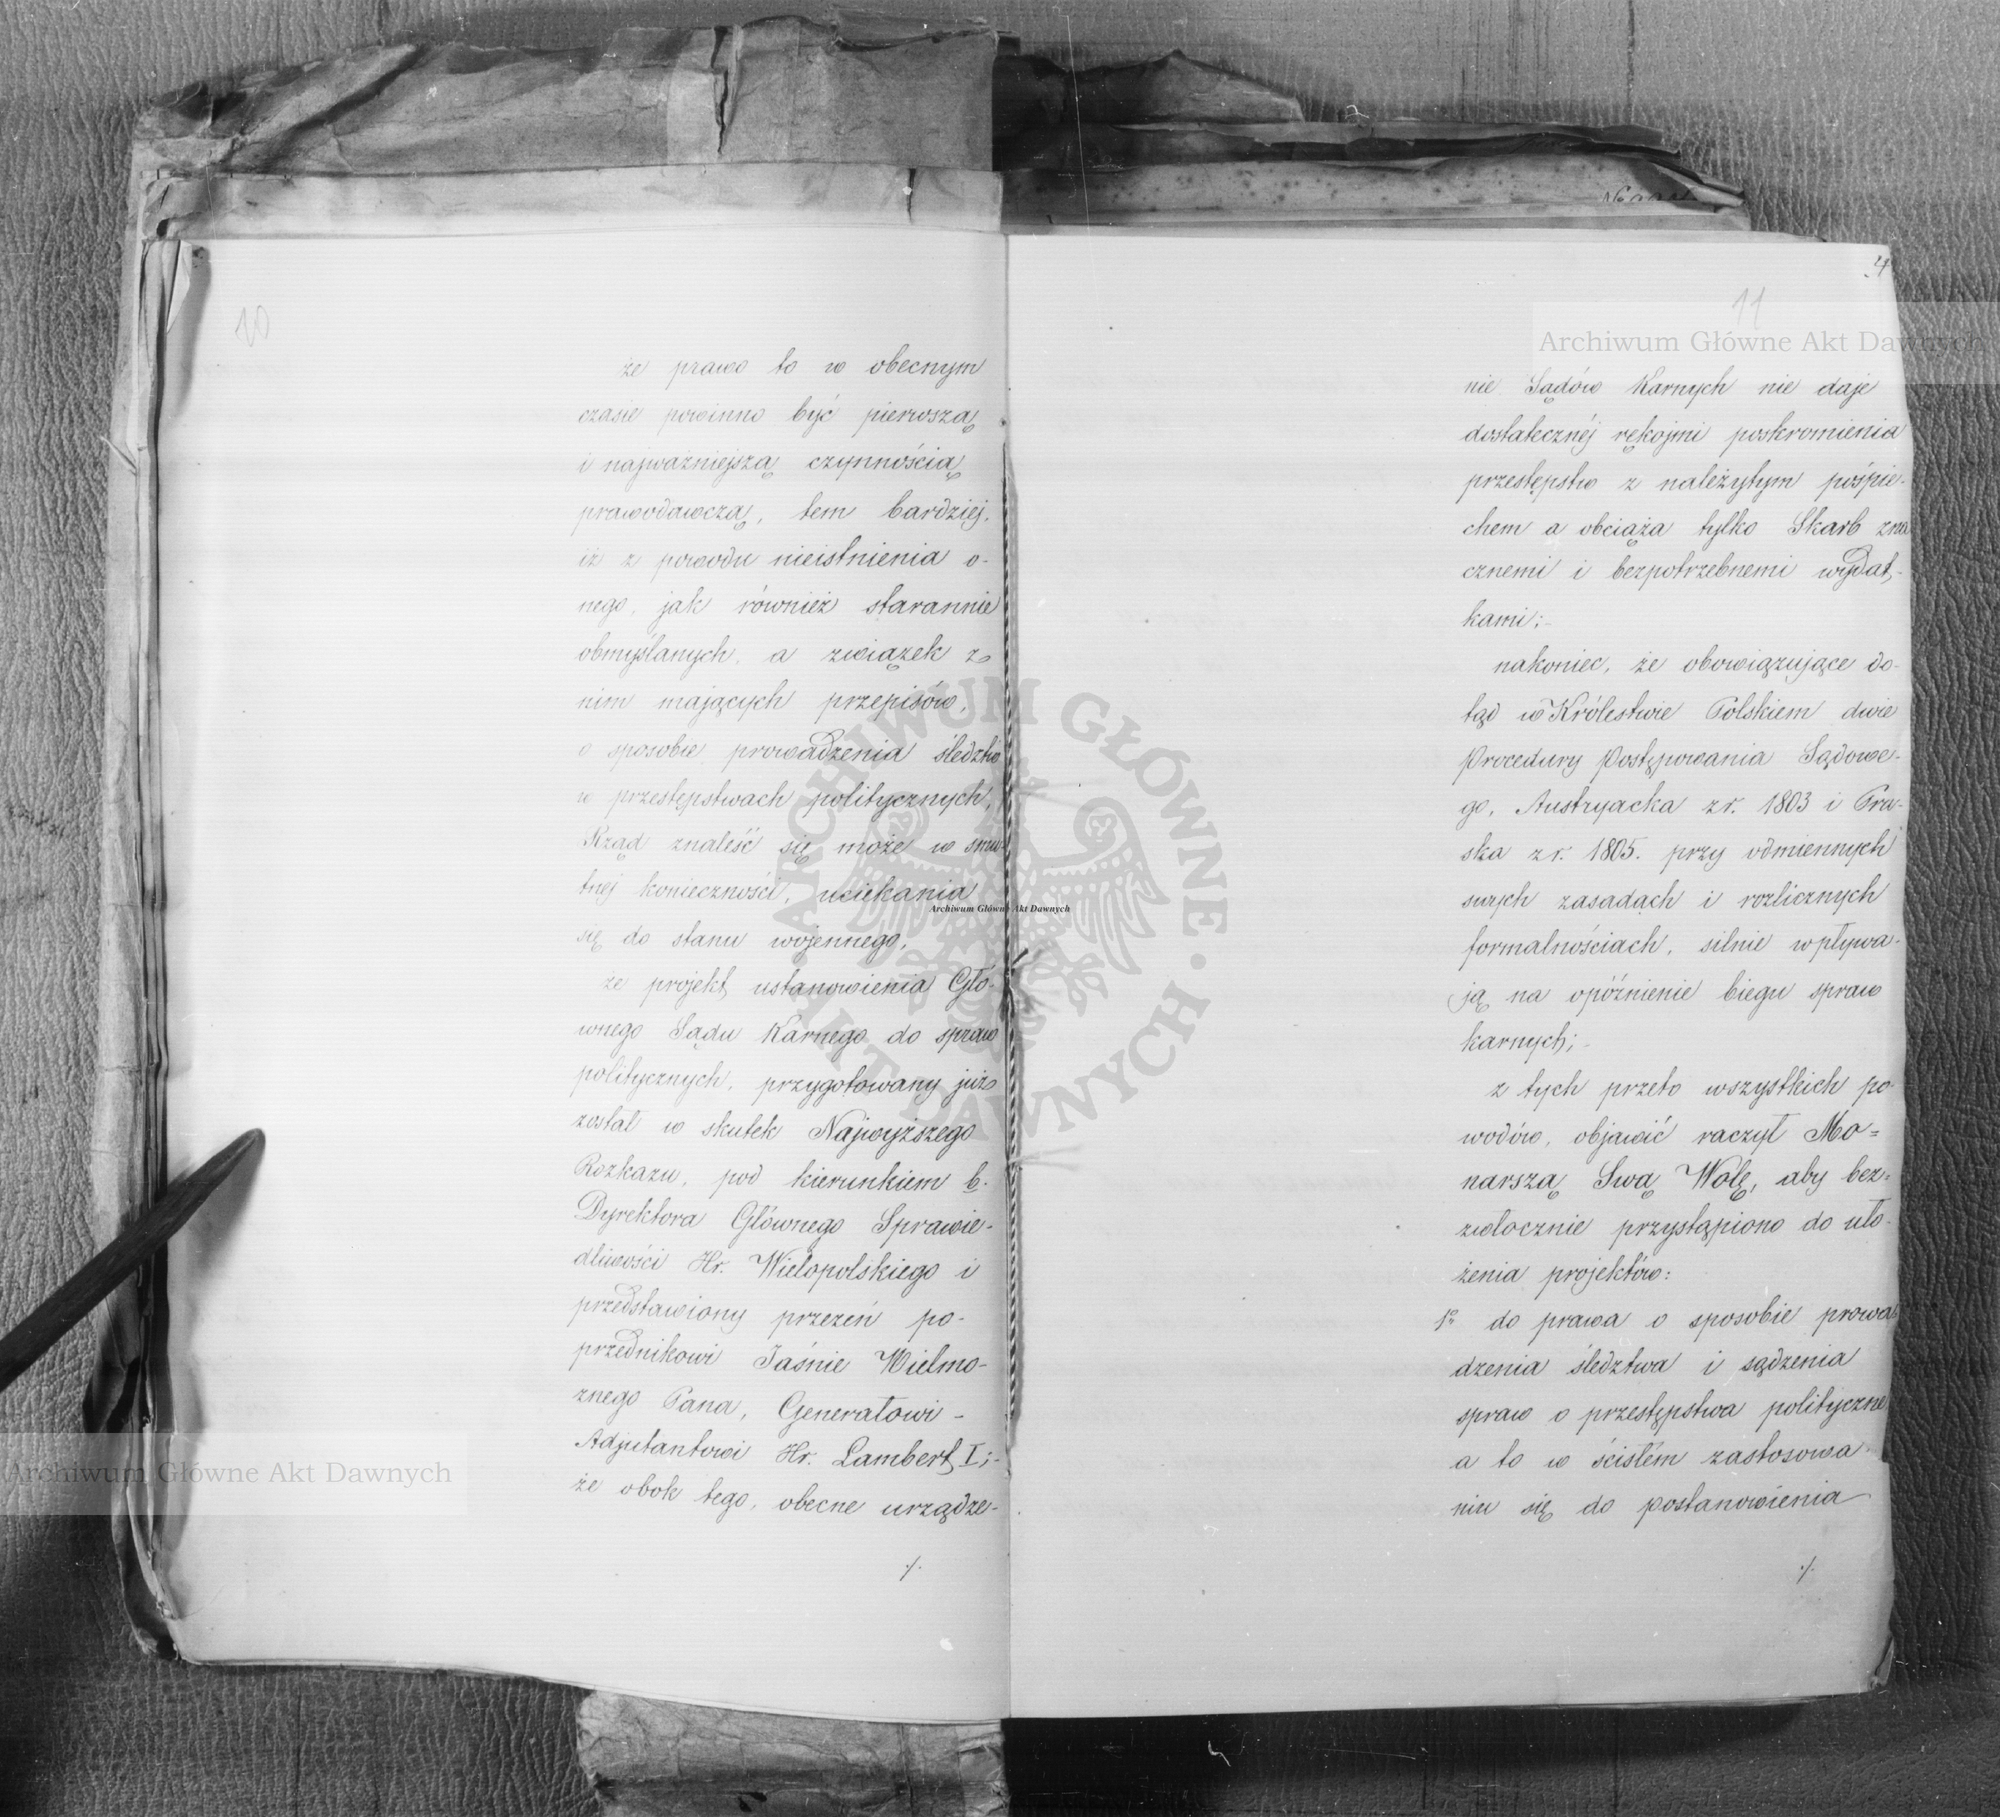 10
że prawo to w obecnym
czasie powinno być pierwszą
i najważniejszą czynnością
prawodawczą, tem bardziej,
iż z powodu nieistnienia o-
nego, jak również starannie
obmyślanych, a związek z
nim mających przepisów,
o sposobie prowadzenia śledztw
w przestępstwach politycznych,
Rząd znaleść się może w smu-
tnej konieczności, uciekania
się do stanu wojennego,
że projekt ustanowienia Głó-
wnego Sądu Karnego do spraw
politycznych, przygotowany już
został w skutek Najwyższego
Rozkazu, pod kierunkiem b.
Dyrektora Głównego Sprawie-
dliwości Hr. Wielopolskiego i
przedstawiony przezeń po-
przednikowi Jaśnie Wielmo-
żnego Pana, Generałowi-
Adjutantowi Hr. Lambert I;-
że obok tego, obecne urządze-
./.
4
11
nie Sądów Karnych nie daje
dostatecznéj rękojmi poskromienia
przestępstw z należytym pośpie-
chem a obciąża tylko Skarb zna
cznemi i bezpotrzebnemi wydat-
kami;-
nakoniec, że obowiązujące do-
tąd w Królestwie Polskiem dwie
Procedury Postępowania Sądowe-
go, Austryacka z r. 1803 i Pru-
ska z r. 1805. przy odmiennych
swych zasadach i rozlicznych
formalnościach, silnie wpływa-
ją na opóźnienie biegu spraw
karnych;-
z tych przeto wszystkich po-
wodów, objawić raczył Mo=
narszą Swą Wolę, aby bez=
zwłocznie przystąpiono do uło-
żenia projektów:
1º do prawa o sposobie prowa-
dzenia śledztwa i sądzenia
spraw o przestępstwa polityczne
a to w ścisłém zastosowa-
niu się do postanowienia
./.
Archiwum Główne Akt Dawnych
Archiwum Główne Akt Dawnych
Archiwum Główne Akt Dawnych
ARCHIWUM GŁÓWNE · AKT DAWNYCH ·